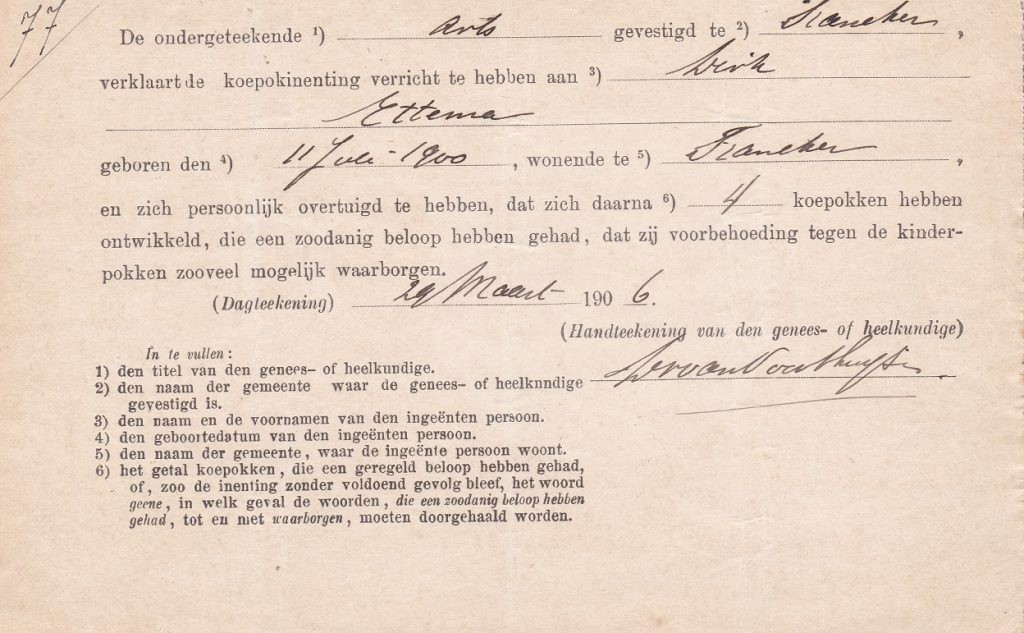 77
De ondergeteekende ¹) Arts gevestigd te ²) Franeker,
verklaart de koepokinenting verricht te hebben aan ³) Dirk
Ettema
geboren den ⁴) 11 Juli 1900, wonende te ⁵) Franeker,
en zich persoonlijk overtuigd te hebben, dat zich daarna ⁶) 4 koepokken hebben
ontwikkeld, die een zoodanig beloop hebben gehad, dat zij voorbehoeding tegen de kinder-
pokken zooveel mogelijk waarborgen.
(Dagteekening) 29 Maart 1906.
(Handteekening van den genees- of heelkundige)
In te vullen:
1) den titel van den genees- of heelkundige.
2) den naam der gemeente waar de genees- of heelknndige
gevestigd is.
3) den naam en de voornamen van den ingeënten persoon.
4) den geboortedatum van den ingeënten persoon.
5) den naam der gemeente, waar de ingeënte persoon woont.
6) het getal koepokken, die een geregeld beloop hebben gehad,
of, zoo de inenting zonder voldoend gevolg bleef, het woord
geene, in welk geval de woorden, die een zoodanig beloop hebben
gehad, tot en met waarborgen, moeten doorgehaald worden.